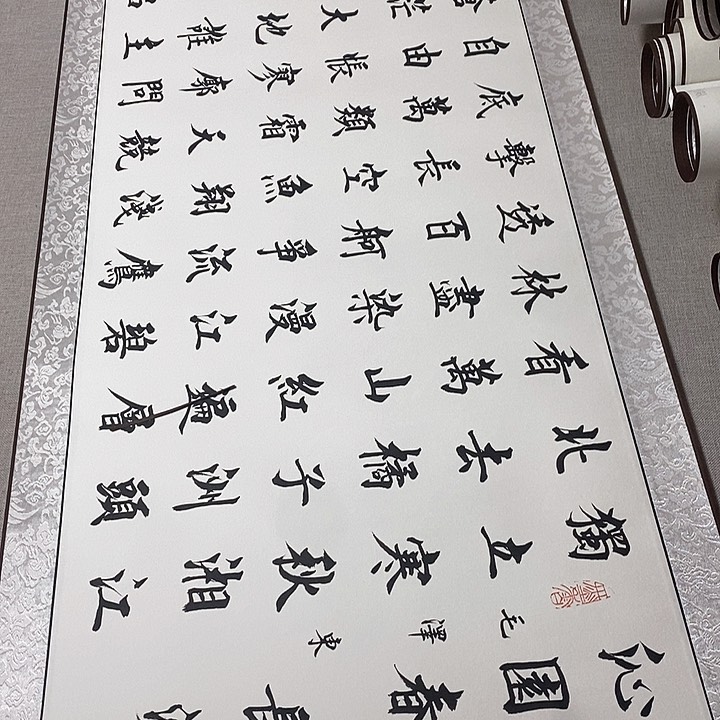 沁園春長沙
毛澤東
獨立寒秋湘江
北去橘子洲頭
看萬山紅遍層
林盡染漫江碧
透百舸爭流鷹
擊長空魚翔淺
底萬類霜天競
自由悵寥廓問
蒼茫大地誰主